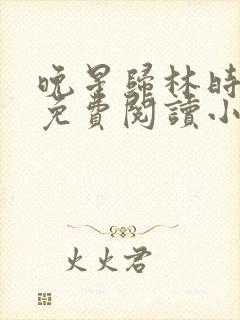 晚星歸林時
免費閱讀小
火火君